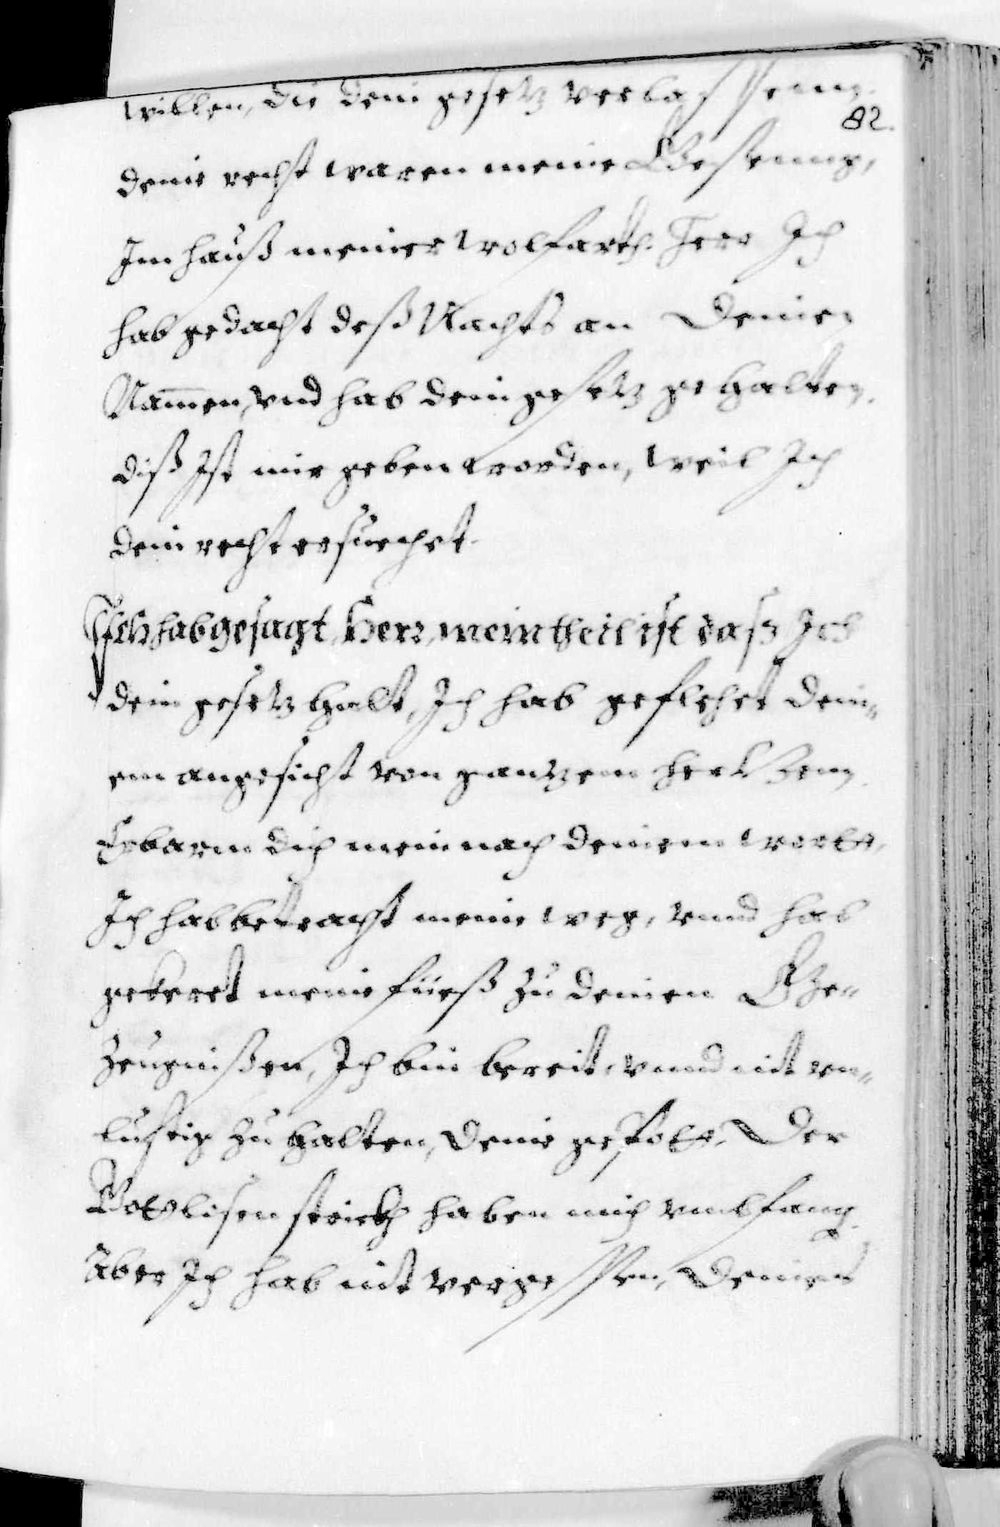 willen, die dein gesetz verlassenn.
82.
deine recht waren meine Gesenng,
Im hauß meiner wolfarth. Herr Ich
hab gedacht deß Nachts an Deinen
Nam̄en, vnd hab dein gesetz gehalten.
diß Ist mir geben worden, weil Ich
dein recht ersuechet.
Ich hab gesagt, Herr, mein theil ist das Ich
dein gesetz halt, Ich hab geflehet dein„
em angesicht von gantzem hertzenn.
Erbarm dich mein nach deinem wortt,
Ich hab betracht meine weg, vnnd hab
gekeret meine füeß zu deinen Ge„
zeugnißen, Ich bin bereit, vnnd nit vn„
lustig zu halten, deine gepott. Der
Gottlisen strickh haben mich vmbfang.
Aber Ich hab nit vergessen, Deines